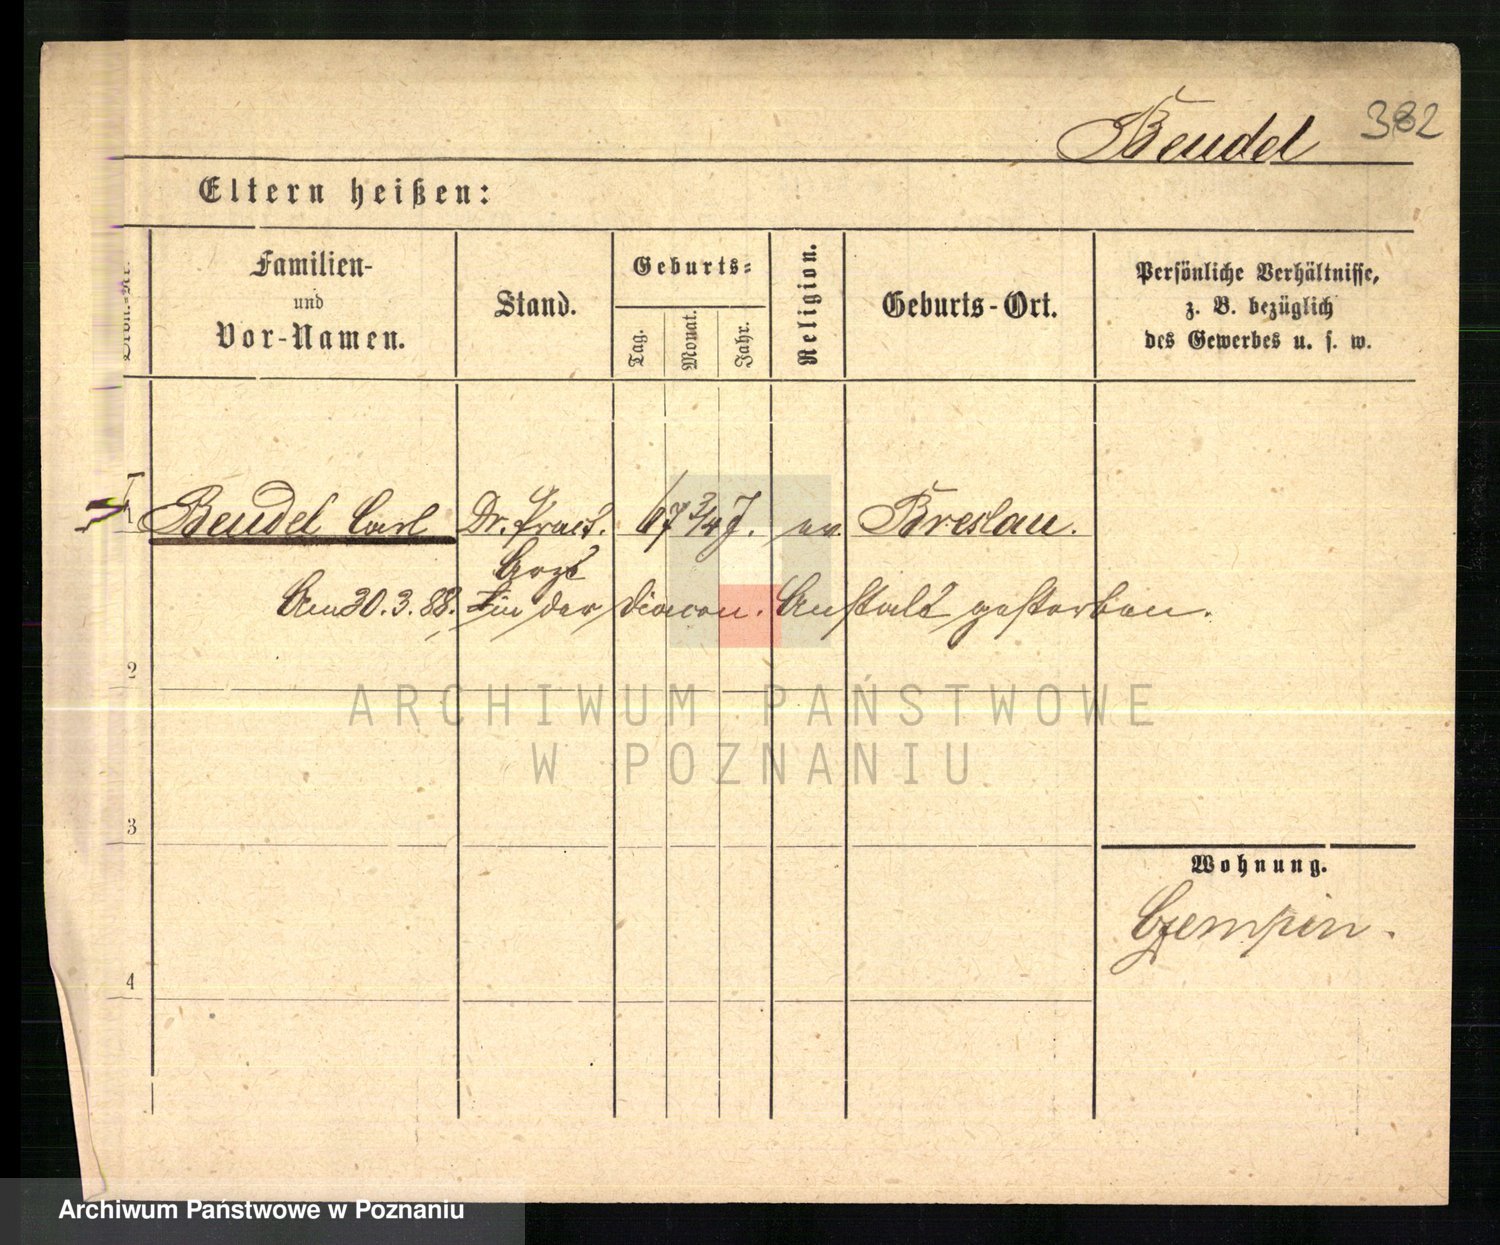 Beudel 382
Eltern heißen:
Ordn.-Nr.
Familien-
und
Vor-Namen.
Stand.
Geburts-
Tag.
Monat.
Jahr.
Religion.
Geburts-Ort.
Persönliche Verhältnisse,
z. B. bezüglich
des Gewerbes u. s. w.
1 Beudel Carl Dr. Pract. 67 3/4 J. ev. Breslau.
Arzt
Am 30.3.88. in der Diacon. Anstalt gestorben.
2
ARCHIWUM PAŃSTWOWE
W POZNANIU
3
Wohnung.
Czempin.
4
Archiwum Państwowe w Poznaniu